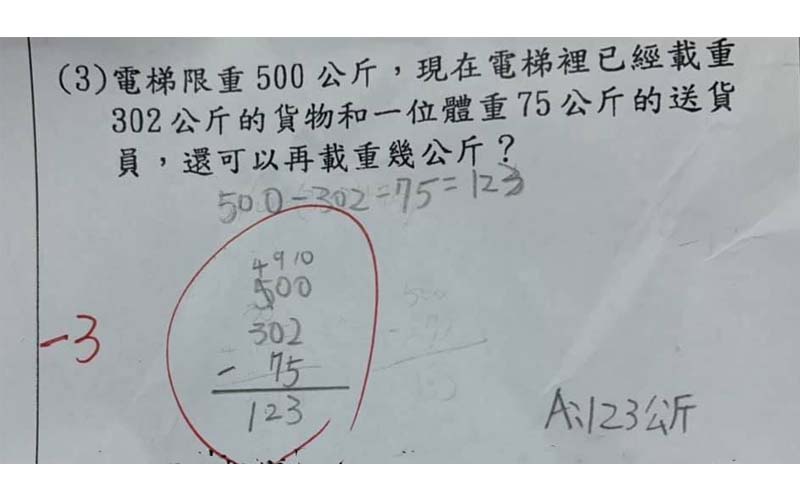 (3)電梯限重500公斤，現在電梯裡已經載重
302公斤的貨物和一位體重75公斤的送貨
員，還可以再載重幾公斤？
500-302=75=123
4910
500
302
- 75
123
-3
A:123公斤